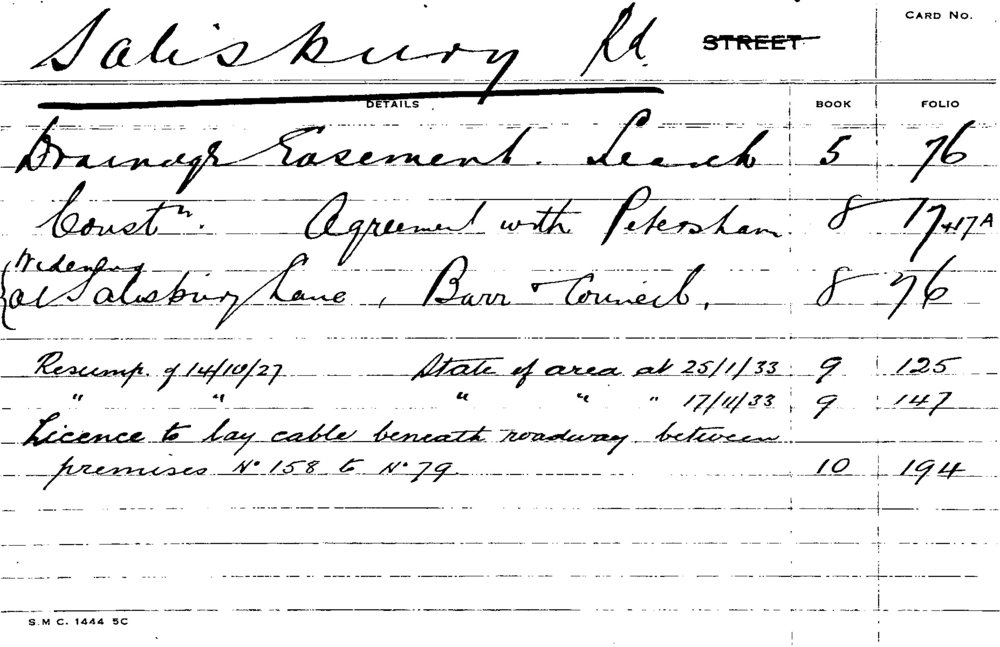 Salisbury Rd. STREET CARD No.
DETAILS BOOK FOLIO
Drainage Easement. Leach 5 76
Constn. Agreement with Petersham. 8 17+17A
Widening
of Salisbury Lane, Barr & Council. 8 76
Resump. of 14/10/27 State of area at 25/1/33 9 125
" " " " " 17/11/33 9 147
Licence to lay cable beneath roadway between
premises No 158 to No 79 10 194
S.M C. 1444 5C